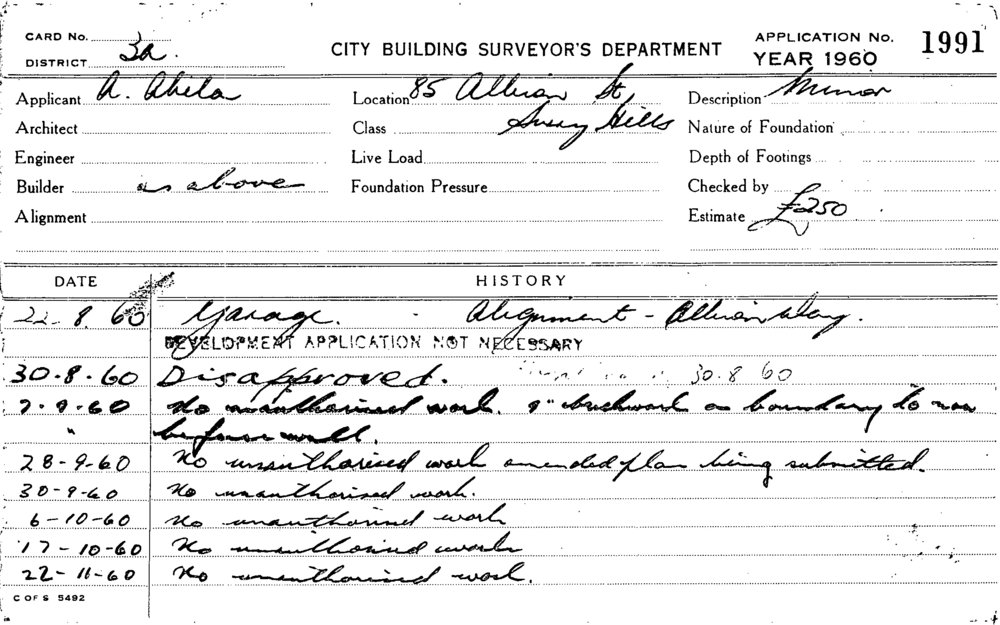 CARD No.
DISTRICT 3a.
CITY BUILDING SURVEYOR'S DEPARTMENT
APPLICATION No. 1991
YEAR 1960
Applicant A. Abela Location 85 Albion St, Description Minor
Architect Class Surry Hills Nature of Foundation
Engineer Live Load Depth of Footings
Builder as above Foundation Pressure Checked by
Alignment Estimate £250
DATE HISTORY
22-8-60 Garage. Alignment - Albion Way.
DEVELOPMENT APPLICATION NOT NECESSARY
30-8-60 Disapproved. 30-8 60
7-9-60 No unauthorised work. 9" brickwork on boundary to
" wall.
28-9-60 No unauthorised work amended plan being submitted.
30-9-60 No unauthorised work.
6-10-60 No unauthorised work
17-10-60 No unauthorised work
22-11-60 No unauthorised work.
C OF S 5492